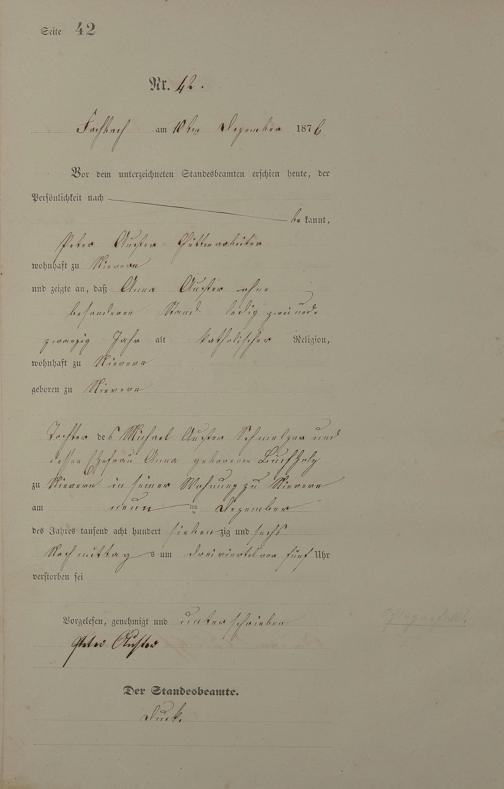 Seite 42
Nr. 42.
Fachbach am 10ten Dezember 1876
Vor dem unterzeichneten Standesbeamten erschien heute, der
Persönlichkeit nach
be kannt,
Peter Hüttenarbeiter
wohnhaft zu Nievern
und zeigte an, daß Anna ohne
besonderen Stand ledig zwei und
zwanzig Jahr alt katholischer Religion,
wohnhaft zu Nievern
geboren zu Nievern
Tochter des Michael Schmelzer und
dessen Ehefrau Anna geborene Buchholz
zu Nievern in seiner Wohnung zu Nievern
am neun ten Dezember
des Jahres tausend acht hundert sieben zig und sechs
Nach mittag s um dreiviertel vor fünf Uhr
verstorben sei
Vorgelesen, genehmigt und unterschrieben
Peter
Der Standesbeamte.